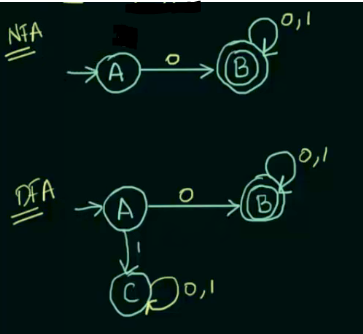 NFA
A
0
B
0,1
DFA
A
0
B
0,1
1
C
0,1